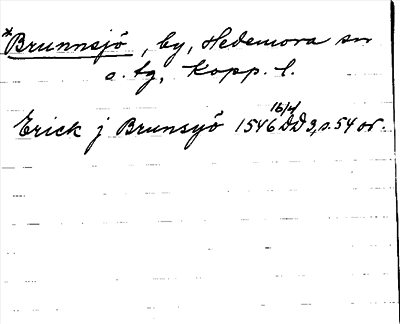 *Brunnsjö, by, Hedemora sn
o. tg, Kopp. l.
Erick j Brunsyö 1546 16/4 DD 3, s. 54 or.